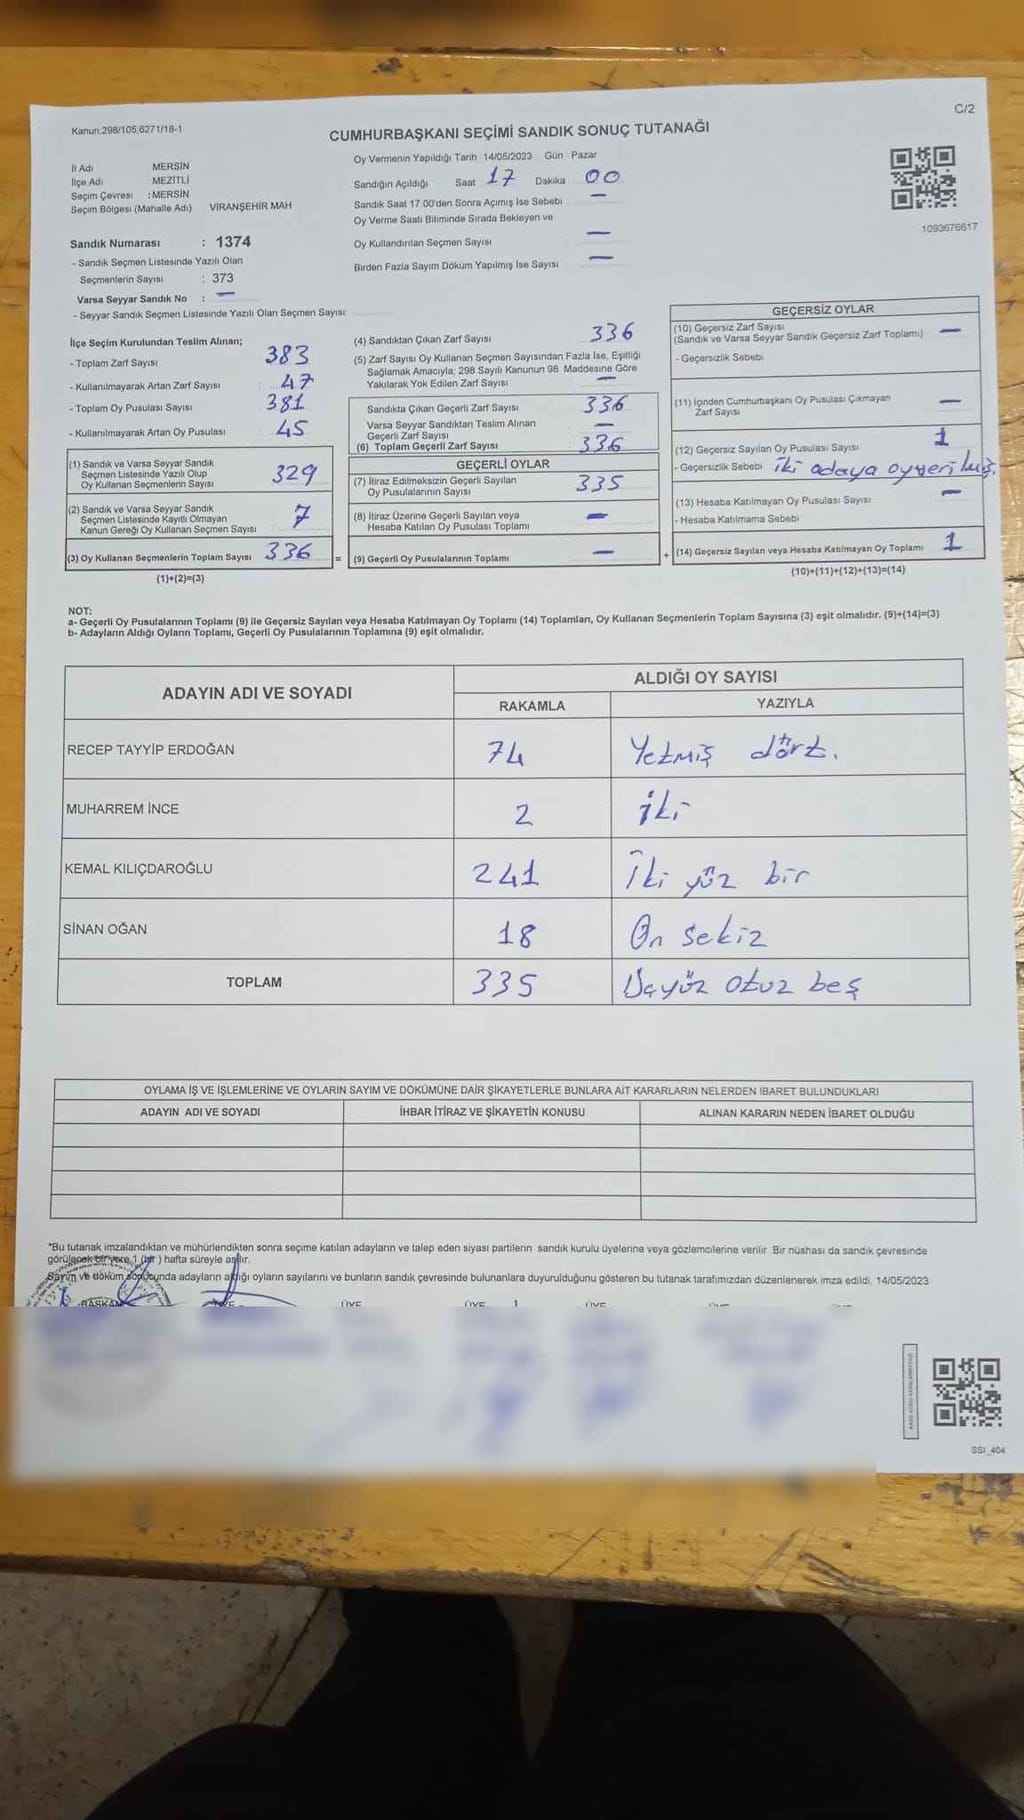 C/2
Kanun:298/105,6271/18-1
CUMHURBAŞKANI SEÇİMİ SANDIK SONUÇ TUTANAĞI
İl Adı MERSİN
İlçe Adı MEZİTLİ
Seçim Çevresi : MERSİN
Seçim Bölgesi (Mahalle Adı) VİRANŞEHİR MAH
Oy Vermenin Yapıldığı Tarih 14/05/2023 Gün Pazar
Sandığın Açıldığı Saat 17 Dakika 00
Sandık Saat 17.00'den Sonra Açımış İse Sebebi —
Oy Verme Saati Bitiminde Sırada Bekleyen ve
Oy Kullandırılan Seçmen Sayısı —
Birden Fazla Sayım Döküm Yapılmış İse Sayısı —
1093676617
Sandık Numarası : 1374
- Sandık Seçmen Listesinde Yazılı Olan
Seçmenlerin Sayısı : 373
Varsa Seyyar Sandık No : —
- Seyyar Sandık Seçmen Listesinde Yazılı Olan Seçmen Sayısı
İlçe Seçim Kurulundan Teslim Alınan;
- Toplam Zarf Sayısı 383
- Kullanılmayarak Artan Zarf Sayısı : 47
- Toplam Oy Pusulası Sayısı 381
- Kullanılmayarak Artan Oy Pusulası 45
(1) Sandık ve Varsa Seyyar Sandık
Seçmen Listesinde Yazılı Olup
Oy Kullanan Seçmenlerin Sayısı 329
(2) Sandık ve Varsa Seyyar Sandık
Seçmen Listesinde Kayıtlı Olmayan
Kanun Gereği Oy Kullanan Seçmen Sayısı 7
(3) Oy Kullanan Seçmenlerin Toplam Sayısı 336 =
(1)+(2)=(3)
(4) Sandıktan Çıkan Zarf Sayısı 336
(5) Zarf Sayısı Oy Kullanan Seçmen Sayısından Fazla İse, Eşitliği
Sağlamak Amacıyla, 298 Sayılı Kanunun 98. Maddesine Göre
Yakılarak Yok Edilen Zarf Sayısı —
Sandıkta Çıkan Geçerli Zarf Sayısı 336
Varsa Seyyar Sandıktan Teslim Alınan
Geçerli Zarf Sayısı —
(6) Toplam Geçerli Zarf Sayısı 336
GEÇERLİ OYLAR
(7) İtiraz Edilmeksizin Geçerli Sayılan
Oy Pusulalarının Sayısı 335
(8) İtiraz Üzerine Geçerli Sayılan veya
Hesaba Katılan Oy Pusulası Toplamı —
(9) Geçerli Oy Pusulalarının Toplamı — +
GEÇERSİZ OYLAR
(10) Geçersiz Zarf Sayısı —
(Sandık ve Varsa Seyyar Sandık Geçersiz Zarf Toplamı)
- Geçersizlik Sebebi
(11) İçinden Cumhurbaşkanı Oy Pusulası Çıkmayan
Zarf Sayısı —
(12) Geçersiz Sayılan Oy Pusulası Sayısı 1
- Geçersizlik Sebebi iki adaya oy verilmiş.
(13) Hesaba Katılmayan Oy Pusulası Sayısı —
- Hesaba Katılmama Sebebi
(14) Geçersiz Sayılan veya Hesaba Katılmayan Oy Toplamı 1
(10)+(11)+(12)+(13)=(14)
NOT:
a- Geçerli Oy Pusulalarının Toplamı (9) ile Geçersiz Sayılan veya Hesaba Katılmayan Oy Toplamı (14) Toplamları, Oy Kullanan Seçmenlerin Toplam Sayısına (3) eşit olmalıdır. (9)+(14)=(3)
b- Adayların Aldığı Oyların Toplamı, Geçerli Oy Pusulalarının Toplamına (9) eşit olmalıdır.
ADAYIN ADI VE SOYADI ALDIĞI OY SAYISI
RAKAMLA YAZIYLA
RECEP TAYYİP ERDOĞAN 74 Yetmiş dört.
MUHARREM İNCE 2 iki
KEMAL KILIÇDAROĞLU 241 İki yüz bir
SİNAN OĞAN 18 On sekiz
TOPLAM 335 Üçyüz otuz beş
OYLAMA İŞ VE İŞLEMLERİNE VE OYLARIN SAYIM VE DÖKÜMÜNE DAİR ŞİKAYETLERLE BUNLARA AİT KARARLARIN NELERDEN İBARET BULUNDUKLARI
ADAYIN ADI VE SOYADI İHBAR İTİRAZ VE ŞİKAYETİN KONUSU ALINAN KARARIN NEDEN İBARET OLDUĞU
*Bu tutanak imzalandıktan ve mühürlendikten sonra seçime katılan adayların ve talep eden siyasi partilerin sandık kurulu üyelerine veya gözlemcilerine verilir. Bir nüshası da sandık çevresinde
görülecek bir yere 1 (bir) hafta süreyle asılır.
Sayım ve döküm sonucunda adayların aldığı oyların sayılarını ve bunların sandık çevresinde bulunanlara duyurulduğunu gösteren bu tutanak tarafımızdan düzenlenerek imza edildi. 14/05/2023
BAŞKAN ÜYE ÜYE ÜYE ÜYE
SSI_404